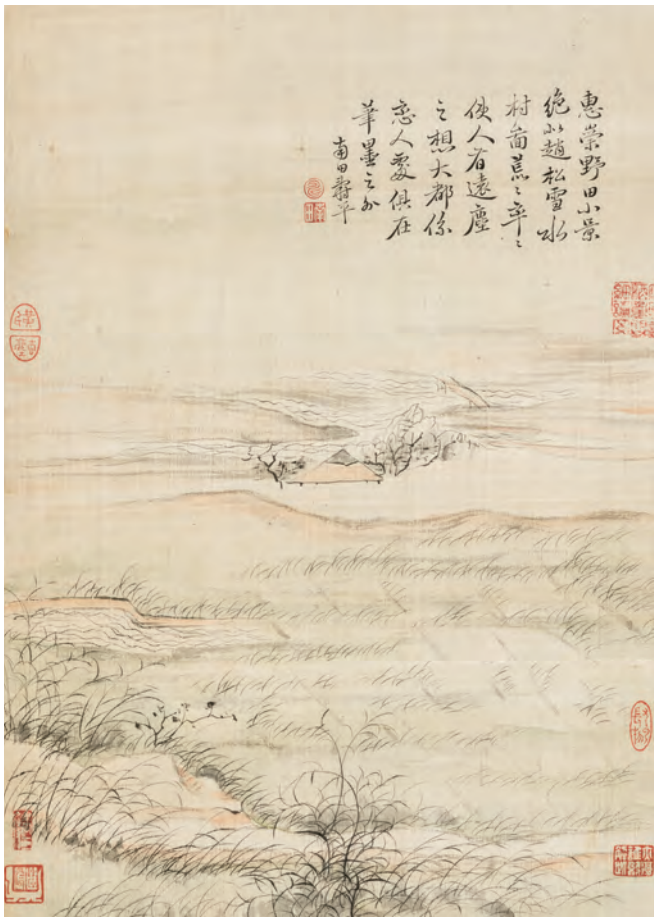 惠崇野田小景
絶似趙松雪水
村啚荒〻率〻
使人有遠塵
之想大都係
戀人處俱在
筆墨之外
南田壽平